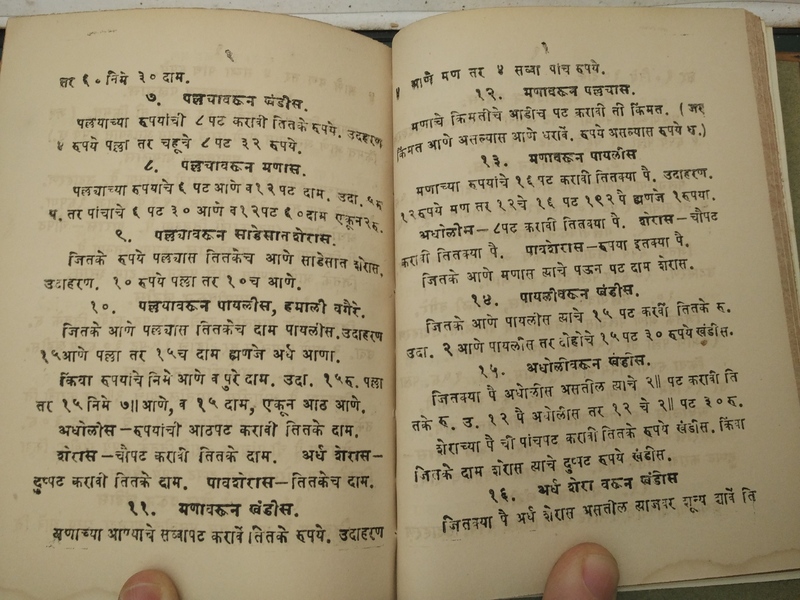 ६
तर ६० निमे ३० दाम.
७. पल्लयावरून खंडीस.
पलयाच्या रुपयांची ८ पट करावी तितके रुपये. उदाहरण
४ रुपये पल्ला तर चहूचे ८ पट ३२ रुपये.
८. पल्लयावरून मणास.
पलयाच्या रुपयांचे ६ पट आणे व १२ पट दाम. उदा. ५ रु
प. तर पांचाचे ६ पट ३० आणे व १२ पट ६० दाम एकून २ रु.
९. पल्लयावरून साडेसात शेरास.
जितके रुपये पलयास तितकेच आणे साडेसात शेरास.
उदाहरण. १० रुपये पल्ला तर १० च आणे.
१०. पल्लयावरून पायलीस, हमाली वगैरे.
जितके आणे पलयास तितकेच दाम पायलीस. उदाहरण
१५ आणे पल्ला तर १५ च दाम ह्मणजे अर्ध आणा.
किंवा रुपयांचे निमे आणे व पुरे दाम. उदा. १५ रु. पल्ला
तर १५ निमे ७॥ आणे, व १५ दाम, एकून आठ आणे.
अधोलीस–रुपयांची आठपट करावी तितके दाम.
शेरास–चौपट करावी तितके दाम. अर्ध शेरास–
दुप्पट करावी तितके दाम. पावशेरास–तितकेच दाम.
११. मणावरून खंडीस.
मणाच्या आण्याचे सव्वापट करावें तितके रुपये. उदाहरण
४ आणे मण तर ४ सव्वा पांच रुपये.
१२. मणावरून पल्लयास.
मणाचे किमतीचे आडीच पट करावी ती किंमत. (जर
किंमत आणे असल्यास आणे धरावें. रुपये असल्यास रुपये ध.)
१३. मणावरून पायलीस
मणाच्या रुपयांचे १६ पट करावी तितक्या पै. उदाहरण.
१२ रुपये मण तर १२ चे १६ पट १९२ पै ह्मणजे १ रुपया.
अधोलीस–८ पट करावी तितक्या पै. शेरास–चौपट
करावी तितक्या पै. पावशेरास–रुपया इतक्या पै.
जितके आणे मणास त्याचे पऊन पट दाम शेरास.
१४. पायलीवरून खंडीस.
जितके आणे पायलीस त्याचे १५ पट करावीं तितके रु.
उदा. २ आणे पायलीस तर दोहोचे १५ पट ३० रुपये खंडीस.
१५. अधोलीवरून खंडीस.
जितक्या पै अधोलीस असतील त्याचे २॥ पट करावी ति
तके रु. उ. १२ पै अधोलीस तर १२ चे २॥ पट ३० रु.
शेराच्या पै ची पांचपट करावी तितके रुपये खंडीस. किंवा
जितके दाम शेरास त्याचे दुप्पट रुपये खंडीस.
१६. अर्ध शेरा वरून खंडीस
जितक्या पै अर्ध शेरास असतील त्याजवर शून्य द्यावें ति